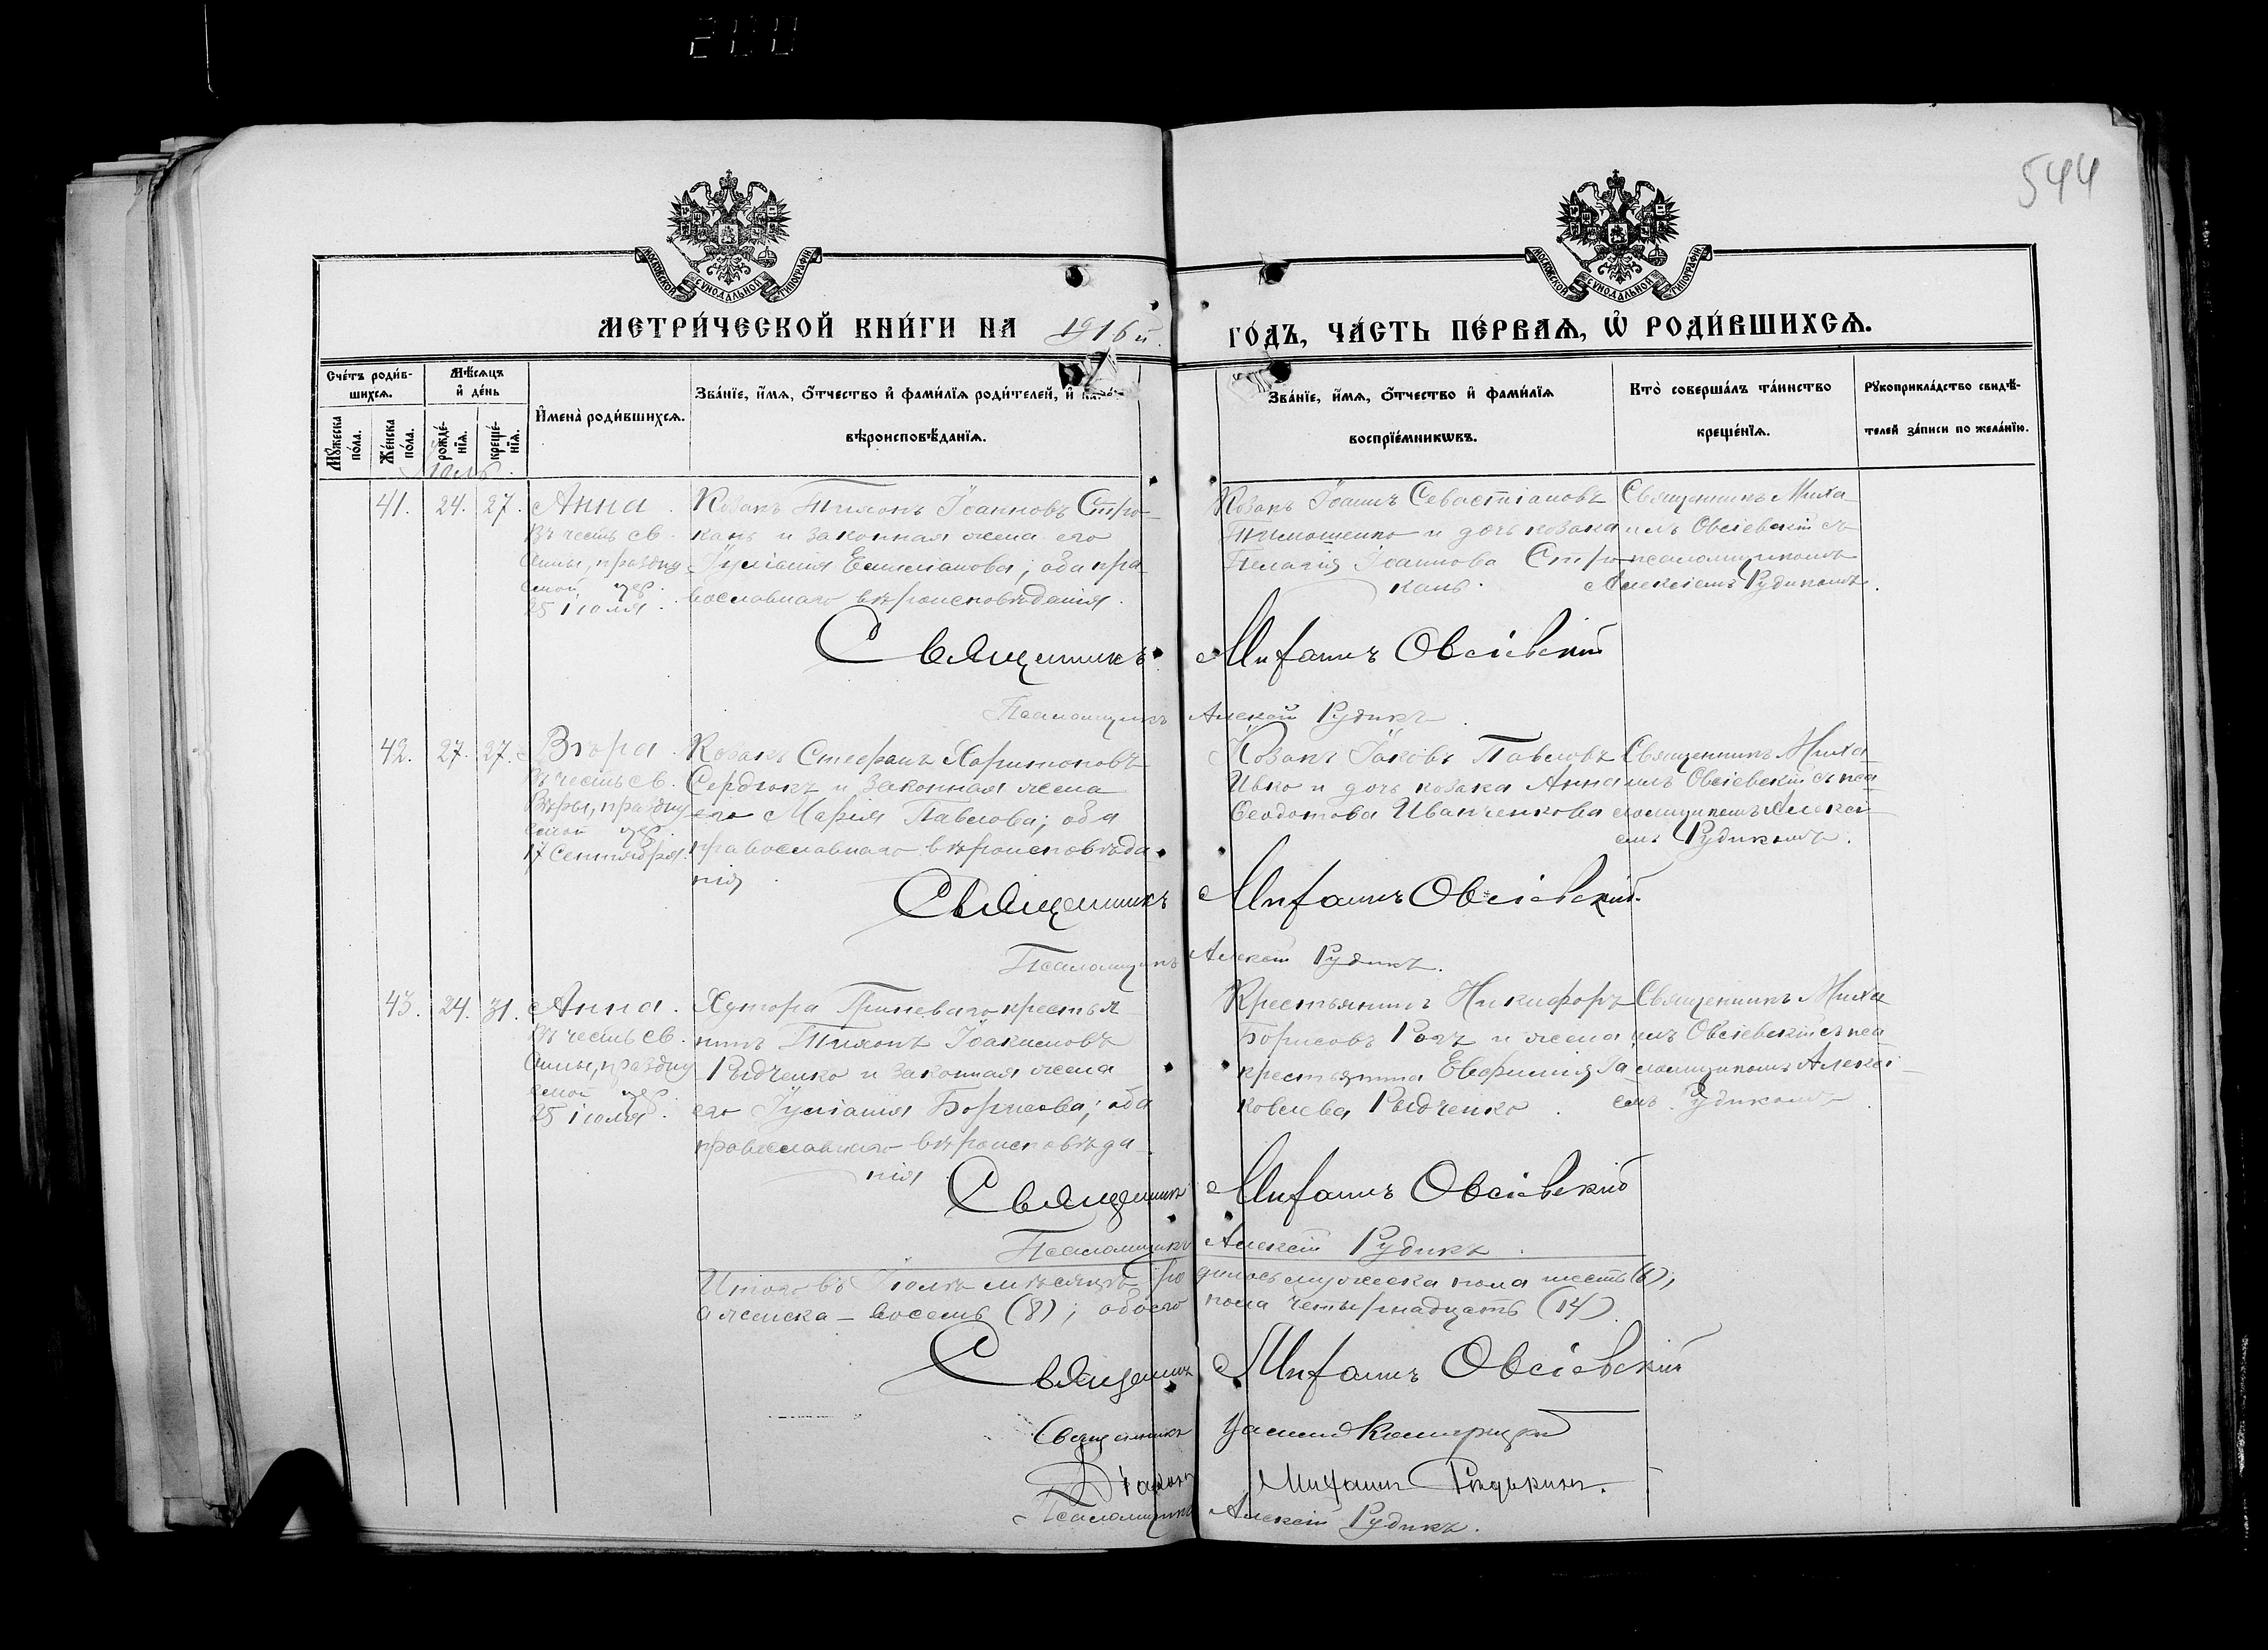 200
544
МОСКОВСКОЙ СѴНОДАЛЬНОЙ ТИПОГРАФІИ
МОСКОВСКОЙ СѴНОДАЛЬНОЙ ТИПОГРАФІИ
МЕТРИ́ЧЕСКОЙ КНИ́ГИ НА 1916 й. ГО́ДЪ, ЧА́СТЬ ПЕ́РВАѦ, Ѽ РОДИ́ВШИХСѦ.
Сче́тъ роди́в-
шихсѧ.
Мꙋ́жеска по́ла.
Же́нска по́ла.
Мѣ́сѧцъ
и҆ де́нь
рожде́-нїѧ.
креще́-нїѧ.
И҆мена̀ роди́вшихсѧ.
Зва́нїе, и҆́мѧ, ѻ҆́тчество и҆ фами́лїѧ роди́телей, и҆
вѣроисповѣ́данїѧ.
Зва́нїе, и҆́мѧ, ѻ҆́тчество и҆ фами́лїѧ
воспрїе́мникѡвъ.
Кто̀ соверша́лъ та́инство
креще́нїѧ.
Рꙋкоприкла́дство свидѣ́-
телей за́писи по жела́нїю.
Іюль.
41. 24. 27. Анна.
Въ честь св.
Анны, праздну
емой цер.
25 Іюля.
Козакъ Тихонъ Іоанновъ Стро-
канъ и законная жена его
Іуліанія Емиліанова; оба пра-
вославнаго вѣроисповѣданія.
Козакъ Іоаннъ Севастіановъ
Тимошенко и дочь козака
Пелагія Іоаннова Стро-
канъ.
Священникъ Миха
илъ Овсіевскій съ
псаломщикомъ
Алексіемъ Рудикомъ.
Священникъ Михаилъ Овсіевскій
Псаломщикъ Алексій Рудикъ.
42. 27. 27. Вѣра.
Въ честь св.
Вѣры, праздну
емой цер.
17 Сентября.
Козакъ Стефанъ Харитоновъ
Сердюкъ и законная жена
его Марія Павлова; оба
православнаго вѣроисповѣда-
нія.
Козакъ Іаковъ Павловъ
Ивко и дочь козака Анна
Ѳеодотова Иванченкова
Священникъ Миха
илъ Овсіевскій съ пса
ломщикомъ Алексі
емъ Рудикомъ.
Священникъ Михаилъ Овсіевскій.
Псаломщикъ Алексій Рудикъ.
43. 24. 31. Анна.
Въ честь св.
Анны, праздну
емой цер.
25 Іюля.
Хутора Гриневаго крестья
нинъ Тихонъ Іоакимовъ
Рыдченко и законная жена
его Іуліанія Борисова; оба
православнаго вѣроисповѣда-
нія
Крестьянинъ Никифоръ
Борисовъ Рогъ и жена
крестьянина Евфимія Іа
ковлева Рыдченко.
Священникъ Миха
илъ Овсіевскій съ пса
ломщикомъ Алексі
емъ Рудикомъ.
Священникъ Михаилъ Овсіевскій
Псаломщикъ Алексій Рудикъ.
Итого въ Іюлѣ мѣсяцѣ родилось мужеска пола шесть (6);
а женска – восемь (8); обоего пола четырнадцать (14).
Священникъ Михаилъ Овсіевскій
Священникъ
Діаконъ Михаилъ
Псаломщикъ Алексій Рудикъ.